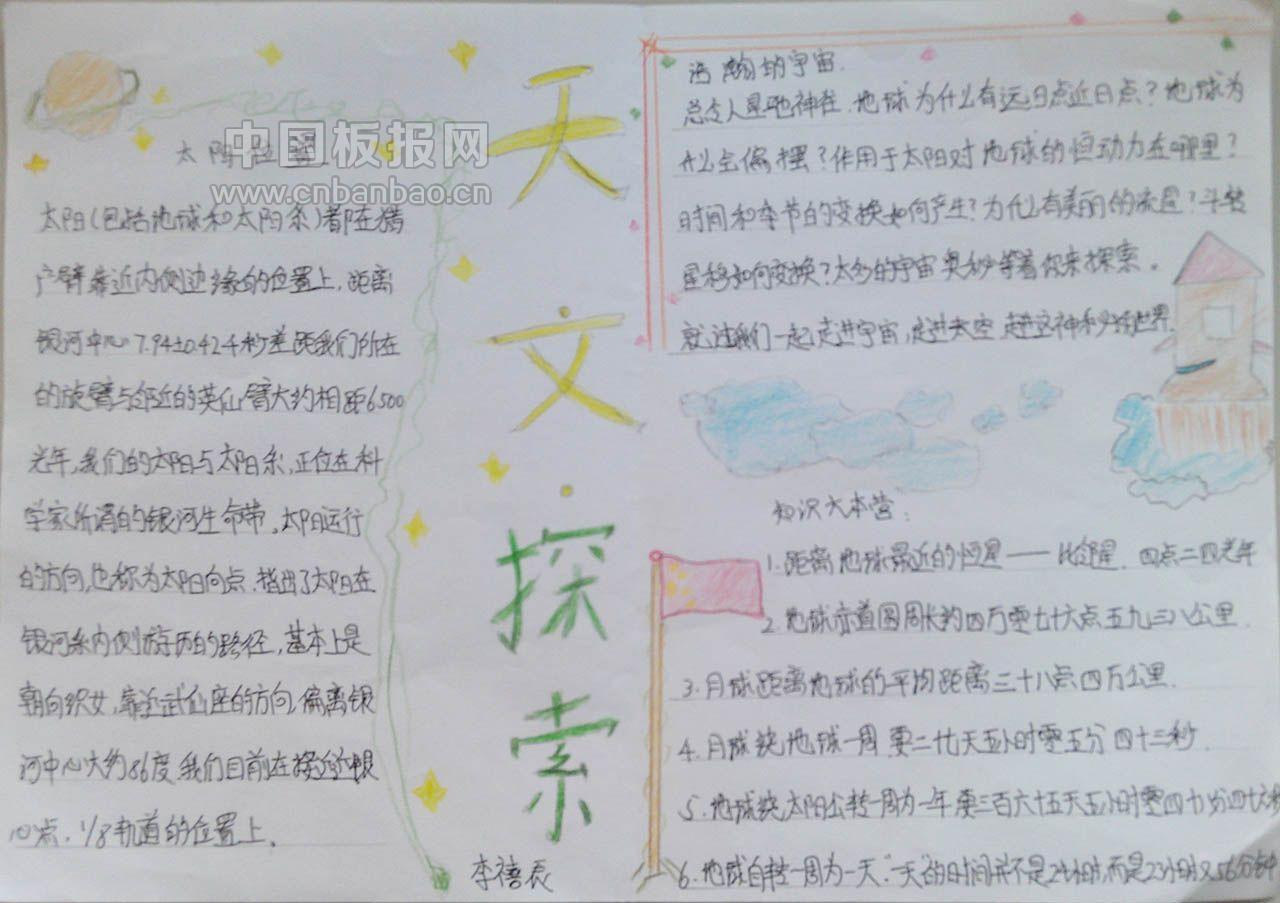 太阳位置
中国板报网
www.cnbanbao.cn
太阳(包括地球和太阳系)都在猎
户臂靠近内侧边缘的位置上,距离
银河中心7.94±0.42千秒差距我们所在
的旋臂与邻近的英仙臂大约相距6500
光年,我们的太阳与太阳系,正位在科
学家所谓的银河生命带。太阳运行
的方向,也称为太阳向点,指出了太阳在
银河系内侧游历的路径,基本上是
朝向织女,靠近武仙座的方向,偏离银
河中心大约86度,我们目前在接近银
心点,1/8轨道的位置上。
天文·探索
李禧辰
浩瀚的宇宙.
总令人星驰神往.地球为什么有远日点近日点?地球为
什么会偏摆?作用于太阳对地球的恒动力在哪里?
时间和季节的变换如何产生?为什么有美丽的流星?斗转
星移如何变换?太多的宇宙奥秘等着你来探索。
就让我们一起走进宇宙,走进太空,走进这神秘的世界.
知识大本营:
1.距离地球最近的恒星——比邻星.四点二四光年
2.地球赤道圆周长约四万零七十六点五九三八公里.
3.月球距离地球的平均距离三十八点四万公里.
4.月球绕地球一周要二十七天五小时零五分四十三秒.
5.地球绕太阳公转一周为一年要三百六十五天五小时零四十八分四十六秒
6.地球自转一周为一天.一天的时间并不是24小时,而是23小时又56分钟